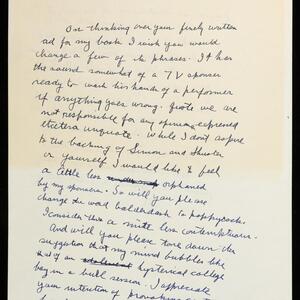 On thinking over your finely written
ad for my book I wish you would
change a few of the phrases. It has
the sound somewhat of a TV sponsor
ready to wash his hands of a performer
if anything goes wrong. Quote we are
not responsible for any opinion expressed
etcetera unquote. While I don't aspire
to the backing of Simon and Shuster
or yourself I would like to feel
a little less orphaned
by my sponsors. So will you please
change the word balderdash to poppycock.
I consider this a mite less contemptuous.
And will you please tone down the
suggestion that my mind bubbles like
that of an hysterical college
boy in a bull session. I appreciate
your intention of